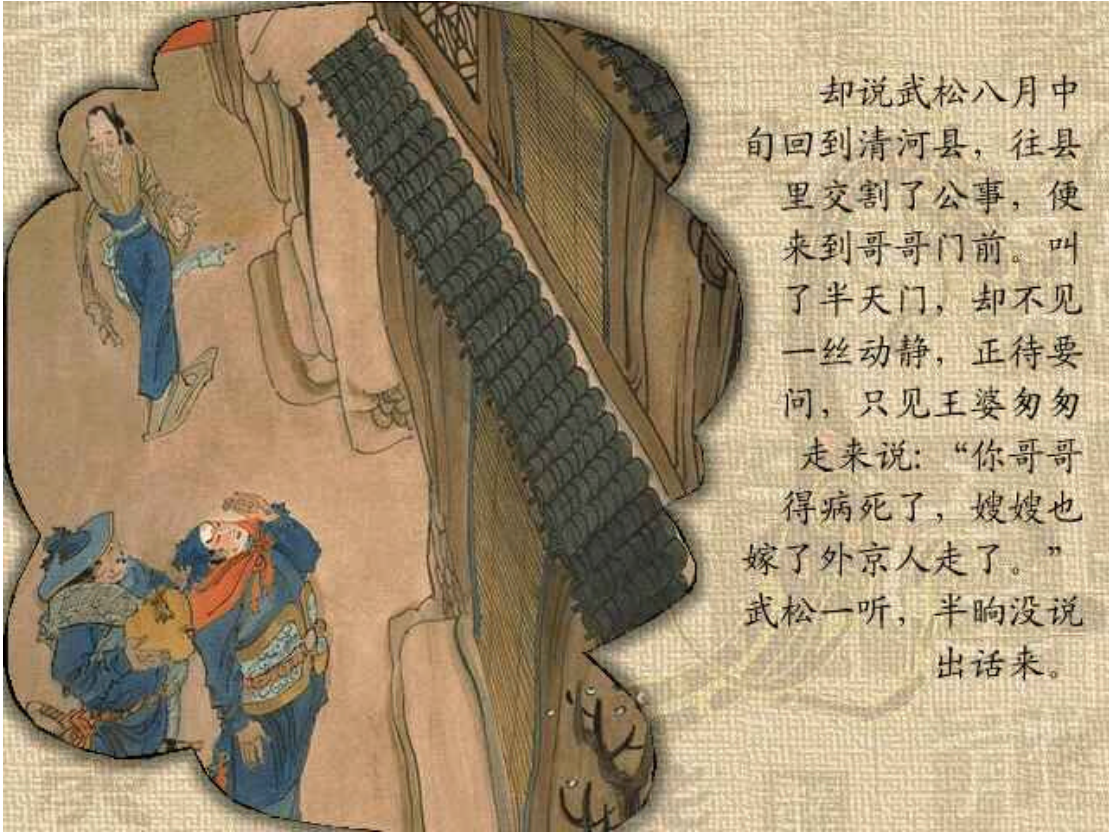 却说武松八月中
旬回到清河县，往县
里交割了公事，便
来到哥哥门前。叫
了半天门，却不见
一丝动静，正待要
问，只见王婆匆匆
走来说:“你哥哥
得病死了，嫂嫂也
嫁了外京人走了。”
武松一听，半晌没说
出话来。